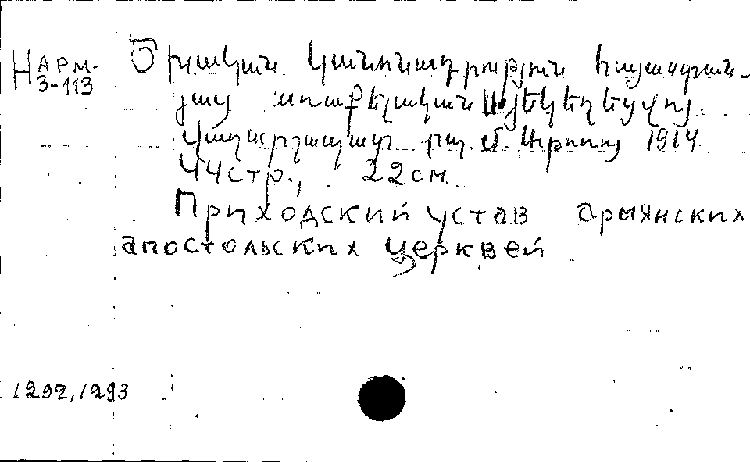 НАРМ-
3-113
Ծխական կանոնադրութիւն հայաստան-
յայց առաքելական եկեղեցւոյ
Վաղարշապատ տպ. Մ. Աթոռոյ 1914
44стр., 22см.
Приходский устав армянских
апостольских церквей
1292, 1293